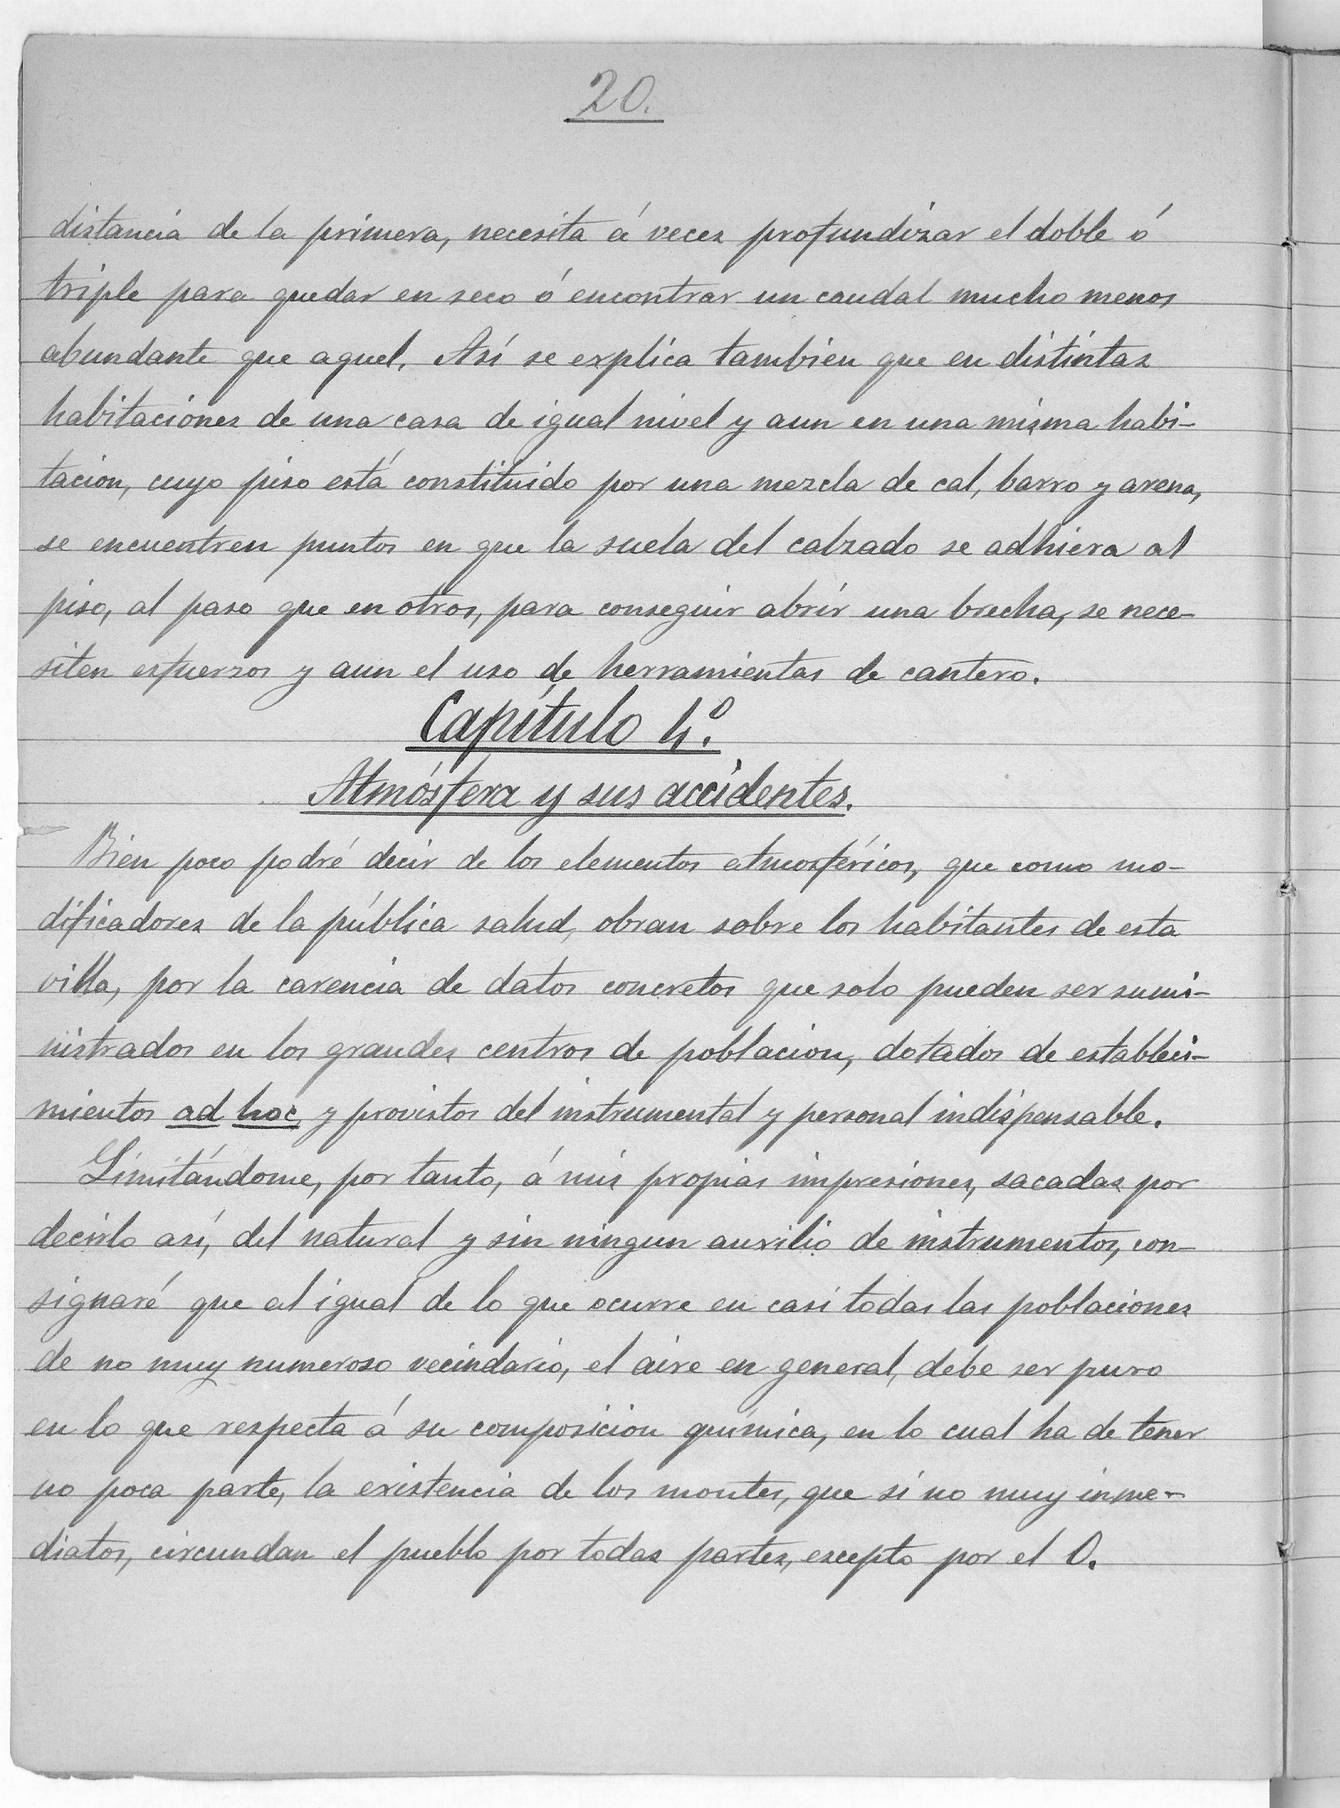 20.
distancia de la primera, necesita á veces profundizar el doble ó
triple para quedar en seco ó encontrar un caudal mucho menos
abundante que aquel. Así se explica tambien que en distintas
habitaciones de una casa de igual nivel y aun en una misma habi-
tacion, cuyo piso está constituido por una mezcla de cal, barro y arena,
se encuentren puntos en que la suela del calzado se adhiera al
piso, al paso que en otros, para conseguir abrir una brecha, se nece-
siten esfuerzos y aun el uso de herramientas de cantero.
Capítulo 4.º
Atmósfera y sus accidentes.
Bien poco podré decir de los elementos atmosféricos, que como mo-
dificadores de la pública salud, obran sobre los habitantes de esta
villa, por la carencia de datos concretos que solo pueden ser sumi-
nistrados en los grandes centros de poblacion, dotados de estableci-
mientos ad hoc y provistos del instrumental y personal indispensable.
Limitándome, por tanto, á mis propias impresiones, sacadas por
decirlo así, del natural y sin ningun auxilio de instrumentos, con-
signaré que al igual de lo que ocurre en casi todas las poblaciones
de no muy numeroso vecindario, el aire en general, debe ser puro
en lo que respecta á su composicion química, en lo cual ha de tener
no poca parte, la existencia de los montes, que si no muy inme-
diatos, circundan el pueblo por todas partes, escepto por el O.